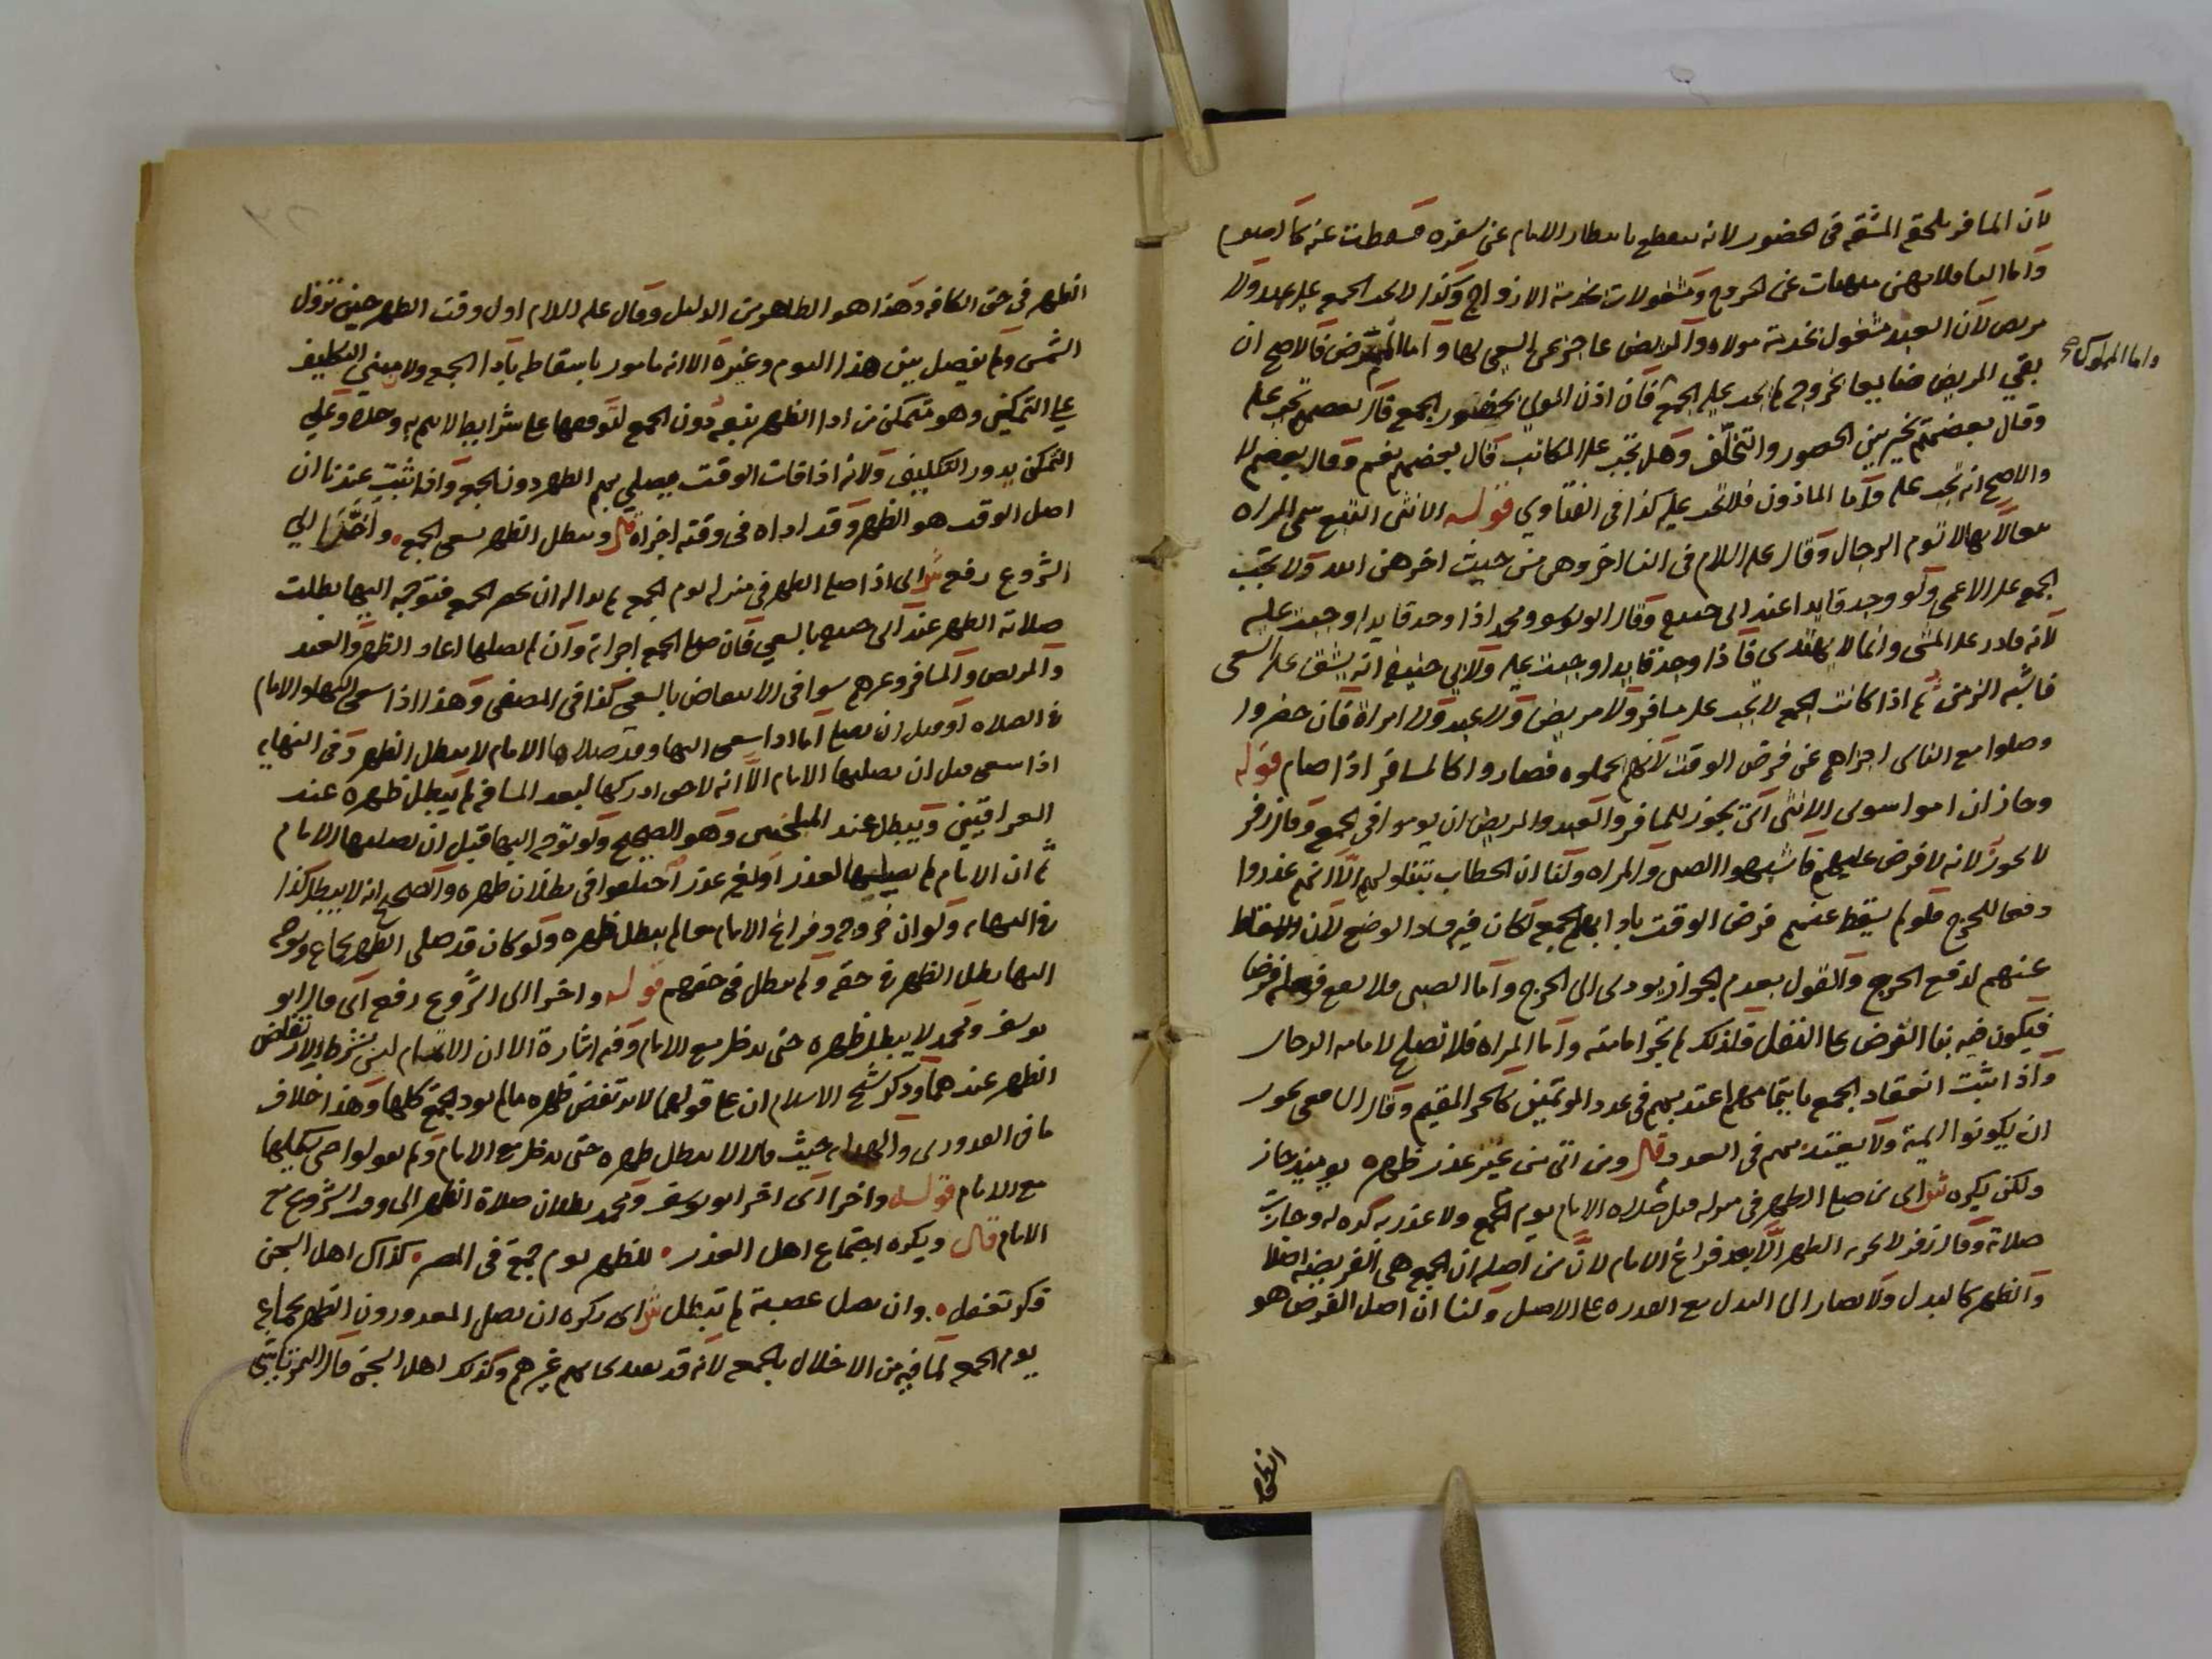 لان المسافر تلحقه المشقة فى الحضور لانه ينقطع بانتظار الامام عن سفره فسقطت عنه كالصوم
واما النسا فلانهن منهيات عن الخروج ومشغولات بخدمة الازواج وكذا لا تجب الجمعة على عبد ولا
مريض لان العبد مشغول بخدمة مولاه والمريض عاجز عن السعى لها واما الممرض فالاصح ان
واما المملوك
بقي المريض ضايعا بخروجه لم تجب عليه الجمعة فان اذن المولى بحضور الجمعة قال بعضهم تجب عليه
وقال بعضهم تخير بين الحضور والتخلف وهل تجب على المكاتب قال بعضهم نعم وقال بعضهم لا
والاصح انه تجب عليه واما الماذون فلا تجب عليه كذا فى الفتاوي قوله
لانها لا تؤم الرجال وقال عليه السلام فى النسا اخروهن من حيث اخرهن الله ولا تجب
الجمعة على الاعمى ولو وجد قايدا عند ابى حنيفة وقال ابو يوسف ومحمد اذا وجد قايدا وجبت عليه
لانه قادر على المشى وانما لا يهتدى فاذا وجد قايدا وجبت عليه ولابي حنيفة انه يشق عليه السعى
فاشبه الزمن ثم اذا كانت الجمعة لا تجب على مسافر ولا مريض ولا عبد ولا امراة فان حضروا
وصلوا مع الناس اجزاهم عن فرض الوقت لانهم تحملوه فصاروا كالمسافر اذا صام قوله
وجاز ان اموا سوى الانثى اى يجوز للمسافر والعبد والمريض ان يوموا فى الجمعة وقال زفر
لا يجوز لانه لا فرض عليهم فاشبهوا الصبى والمراه ولنا ان الخطاب يتناولهم الا انهم عذروا
دفعا للحرج فلو لم يسقط عنهم فرض الوقت باداء الجمعة لكان فيه فساد الوضع لان الاسقاط
عنهم لدفع الحرج والقول بعدم الجواز يودى الى الحرج واما الصبى فلا يقع فعله فرضا
فيكون فيه بنا الفرض على النفل فلذلك لم تجز امامته واما المراه فلا تصلح لامامة الرجال
واذا ثبت انعقاد الجمعة بايتمامهم اعتد بهم فى عدد الموتمين كالحر المقيم وقال الشافعى يجوز
ان يكونوا ايمة ولا يعتد بهم فى العدد قال ومن اتى من غير عذر ظهره يوميذ جاز
ولكن يكره ش اى من صلى الظهر فى منزله قبل صلاة الامام يوم الجمعة ولا عذر به كره له وجازت
صلاته وقال زفر لا تجزيه الظهر الا بعد فراغ الامام لان من اصله ان الجمعة هى الفريضة اصلا
والظهر كالبدل ولا يصار الى البدل مع القدرة على الاصل ولنا ان اصل الفرض هو
الظهر
الظهر فى حق الكافة وهذا هو الظاهر من الدليل وقال عليه السلام اول وقت الظهر حين تزول
الشمس ولم يفصل بين هذا اليوم وغيره الا انه مامور باسقاطه بادا الجمعة ولا مبنى التكليف
على التمكين وهو متمكن من ادا الظهر بنفسه دون الجمعة لتوقفها على شرايط لا تتم به وحده وعلى
التمكن يدور التكليف ولانه اذا فات الوقت يصلي بهم الظهر دون الجمعة واذا ثبت عندنا ان
اصل الوقت هو الظهر وقد اداه فى وقته اجزاه قال وبطل الظهر بسعى الجمعة واخرا الي
الشروع رفع ش اى اذا صلى الظهر فى منزله يوم الجمعة ثم بدا له ان يحضر الجمعة فتوجه اليها بطلت
صلاته الظهر عند ابى حنيفة بالسعي فان صلى الجمعة اجزاته وان لم يصلها اعاد الظهر والعبد
والمريض والمسافر وغيرهم سوا فى الانتقاض بالسعى كذا فى المصفى وهذا اذا سعى اليها والامام
فى الصلاه او قبل ان يصلى اما اذا سعى اليها وقد صلاها الامام لا يبطل الظهر وفى النهايه
اذا سعى قبل ان يصليها الامام الا انه لا يرجى ادركها لبعد المسافة لم يبطل ظهره عند
العراقيين ويبطل عند البلخيين وهو الصحيح ولو توجه اليها قبل ان يصليها الامام
ثم ان الامام لم يصليها لعذر او لغير عذر اختلفوا فى بطلان ظهره والصحيح انه لا يبطل كذا
فى النهايه ولو ان خروجه وفراغ الامام معا لم يبطل ظهره ولو كان قد صلى الظهر بجماعة وتوجه
اليها بطل الظهر فى حقه ولم يبطل فى حقهم قوله واخرا الى الشروع رفع اى قال ابو
يوسف ومحمد لا يبطل ظهره حتى يدخل مع الامام وفيه اشارة الى ان الاتمام ليس بشرط لانتقاض
الظهر عندهما وذكر شيخ الاسلام ان على قولهما لا يرتفض ظهره مالم يود الجمعة كلها وهذا خلاف
ما فى القدورى والهدايه حيث قالا لا يبطل ظهره حتى يدخل مع الامام ولم يقولوا حتى يكملها
مع الامام قوله واخرا اى اخر ابو يوسف ومحمد بطلان صلاة الظهر الى وقت الشروع مع
الامام قال ويكره اجتماع اهل العذر للظهر يوم جمعة فى المصر كذاك اهل السجن
فكن تفعل وان يصل عصبة لم تبطل ش اى يكره ان يصلى المعذورون الظهر بجماعة
يوم الجمعة لما فيه من الاخلال بالجمعة لانه قد يقتدى بهم غيرهم وكذلك اهل السجن قال التمرتاشى